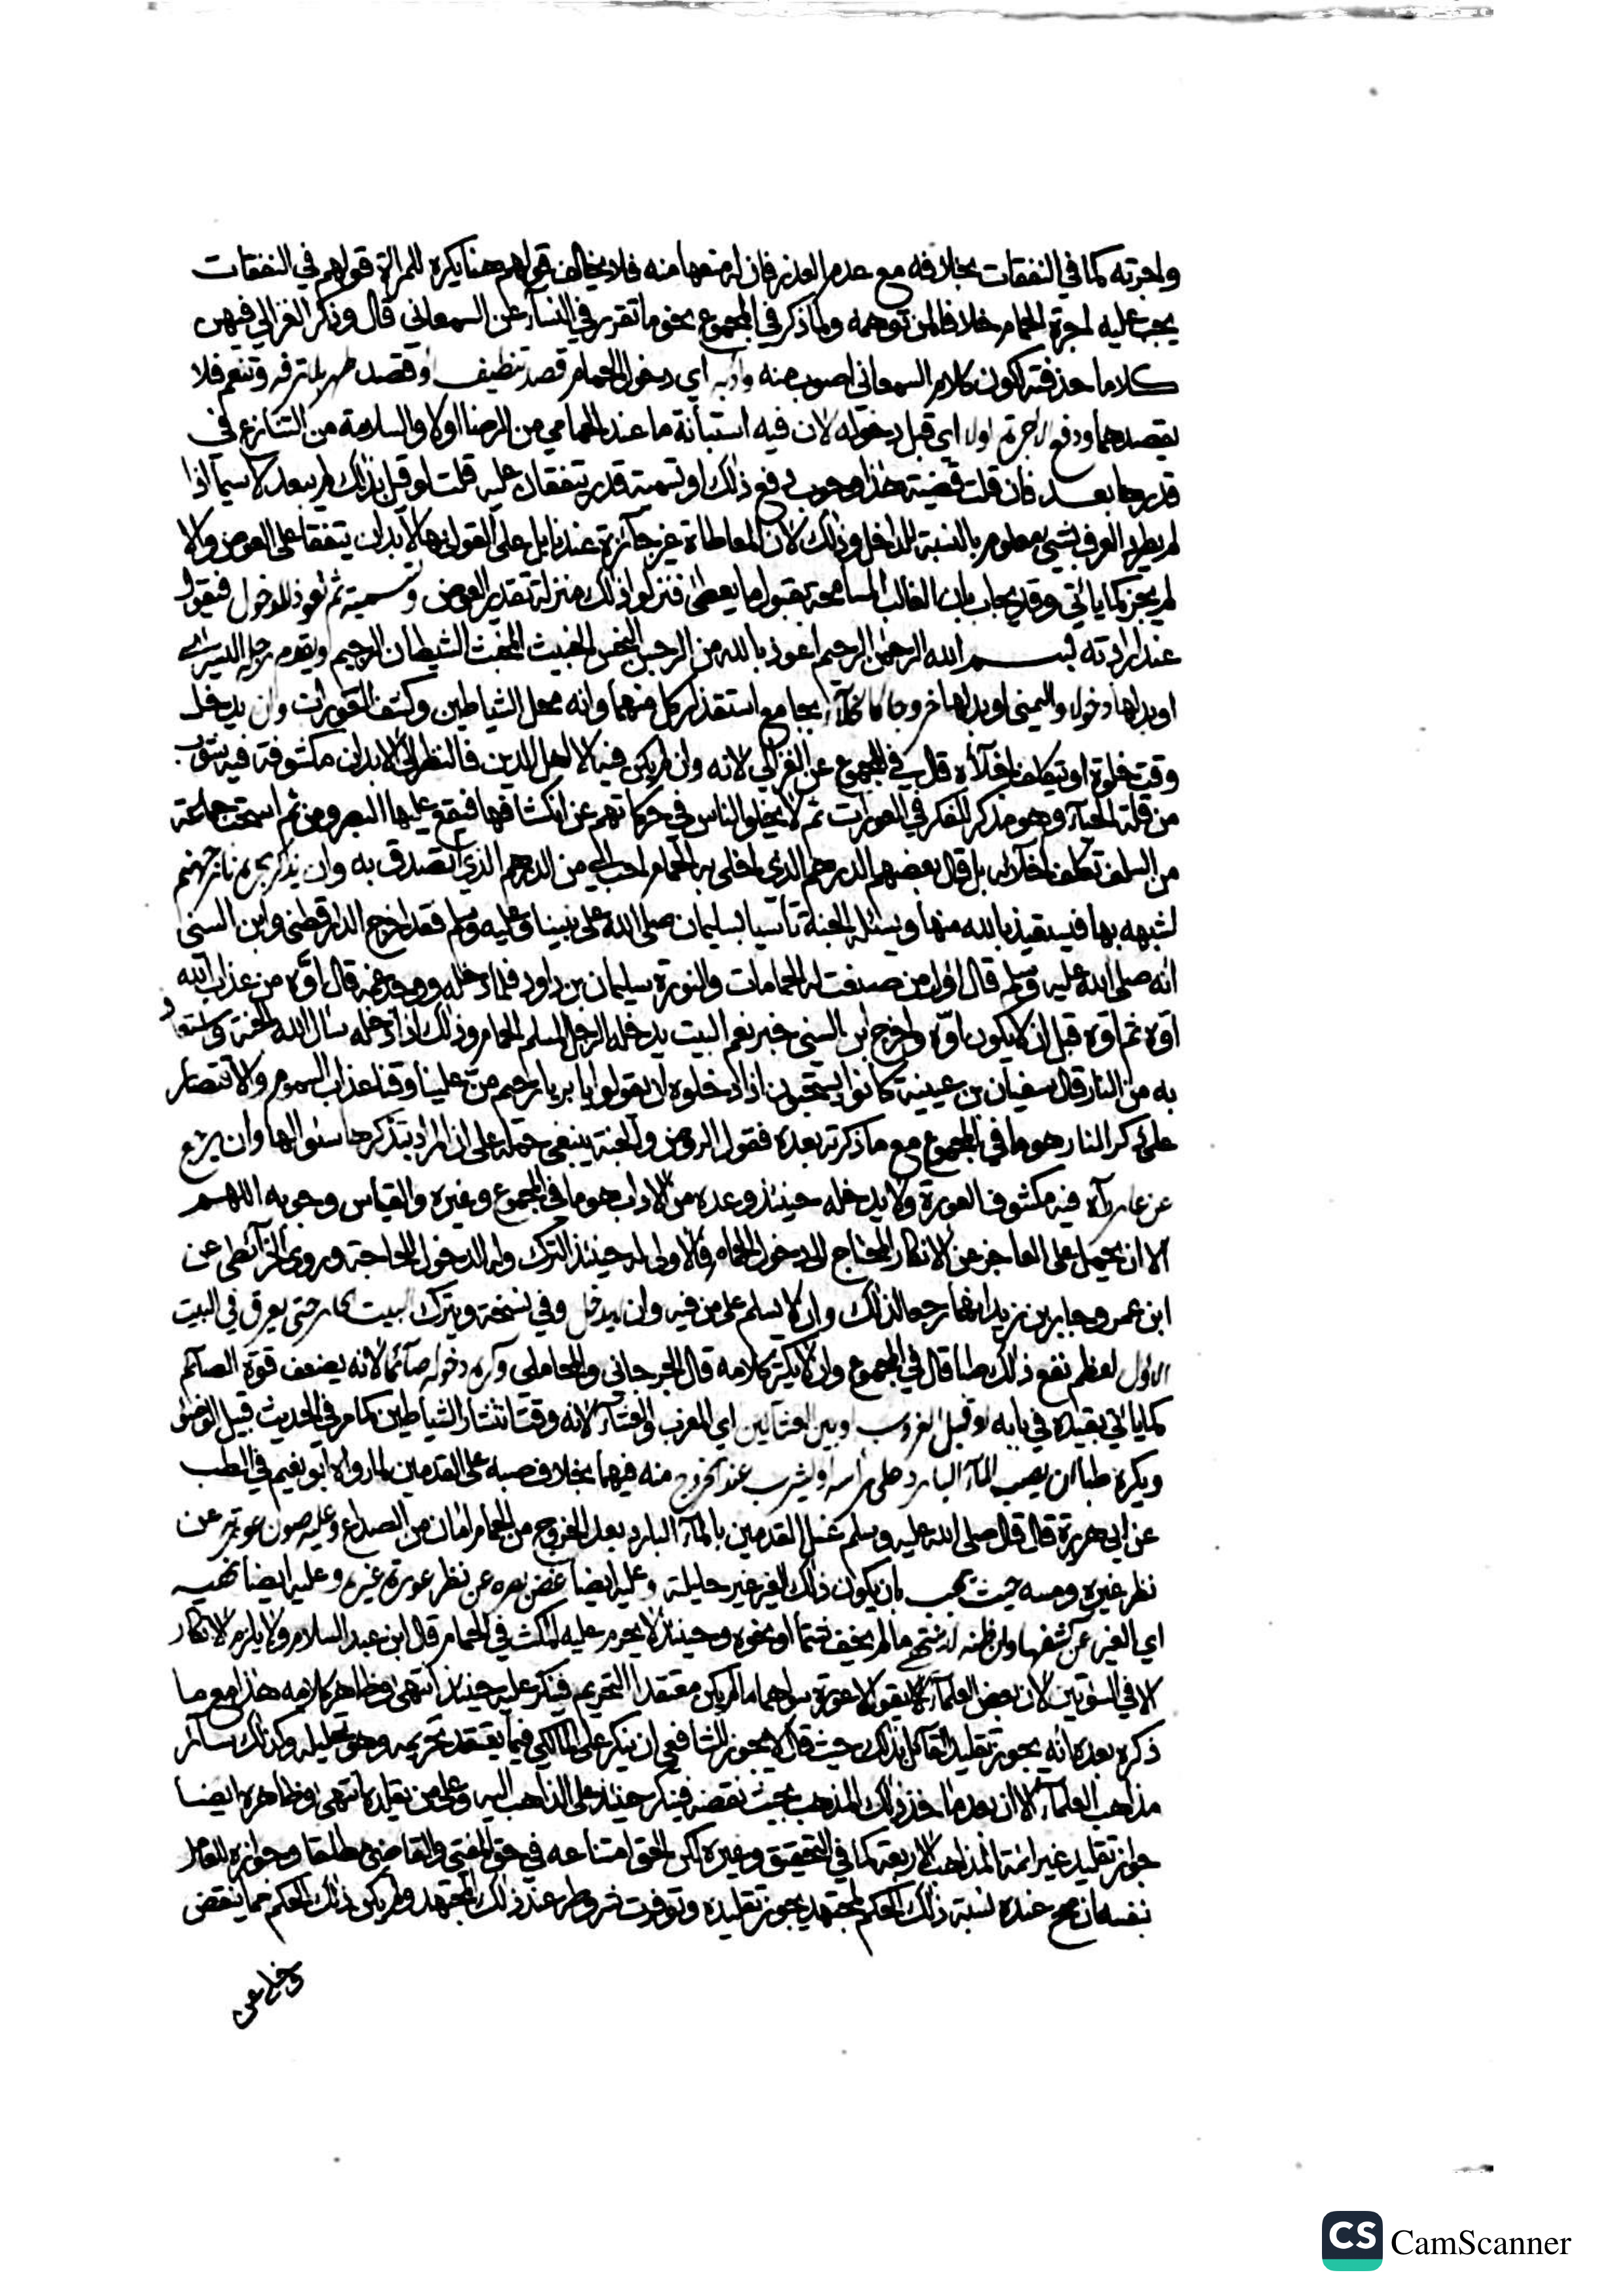 واجرته كما في النفقات بخلافه مع عدم العذر فان له منعها منه فلا يخالف قولهم هنا يكره للمراة قولهم في النفقات
يجب عليه اجرة الحمام خلافا لمن توهمه ولما ذكر في المجموع نحو ما تقرر في النسآء عن السمعاني قال وذكر الغزالي فيهن
كلاما حذفته لكون كلام السمعاني اصوب منه وادبه اي دخول الحمام قصد تنظيف او قصد طهر لا ترفه وتنعم فلا
يقصدهما ودفع الاجرة اولا اي قبل دخوله لان فيه استبانة ما عند الحمامي من الرضا اولا والسلامة من التنازع في
قدرها بعد فان قلت قضية هذا وجوب دفع ذلك او تسمية قدر يتفقان عليه قلت لو قيل بذلك لم يبعد لا سيما اذا
لم يطرد العرف بشيء معلوم بالنسبة للداخل وذلك لان المعاطاة غير جآئزة عندنا بل على القول بها لا بد ان يتفقا على العوض والا
لم يجز كما ياتي وقد يجاب بان الغالب المسامحة بقبول ما يعطى فنزلوا ذلك منزلة تقدير العوض وتسمية ثم تعوذ للدخول فيقول
عند ارادته بسم الله الرحمن الرحيم اعوذ بالله من الرجس النجس الخبيث المخبث الشيطان الرجيم ويقدم رجله اليسرى
او بدلها دخولا واليمنى او بدلها خروجا كالخلآء بجامع استقذار كل منهما وانه محل الشياطين وكشف العورات وان يدخل
وقت خلوة او يتكلف اخلآءه قال في المجموع عن الغزالي لانه وان لم يكن فيه الا اهل الدين فالنظر الى الابدان مكشوفة فيه شوب
من قلة الحيآء وهو مذكر للفكر في العورات ثم لا يخلو الناس في حركاتهم عن انكشافها فيقع عليها البصر ومن ثم استحب جماعة
من السلف تكلف اخلآئه بل قال بعضهم الدرهم الذي اخلي به الحمام احب الي من الدرهم الذي اتصدق به وان يذكر بحره نار جهنم
لشبهه بها فيستعيذ بالله منها ويسئله الجنة تآسيا بسليمان صلى الله على نبينا وعليه وسلم فقد اخرج الدارقطني وابن السني
انه صلى الله عليه وسلم قال اول من صنعت له الحمامات والنورة سليمان بن داود فلما دخله ووجد غمه قال اوّه من عذاب الله
اوّه ثم اوّه قبل ان لا يكون اوّه واخرج ابن السني خبر نعم البيت يدخله الرجل المسلم الحمام وذلك اذا دخله سال الله الجنة واستعاذ
به من النار قال سفيان بن عيينة كانوا يستحبون اذا دخلوه ان يقولوا يا بر يا رحيم من علينا وقنا عذاب السموم والاقتصار
على ذكر النار هو ما في المجموع مع ما ذكرته بعده فقول الروض والجنة ينبغي حمله على ان المراد بتذكرها سئوالها وان يرجع
عن عار رآه فيه مكشوف العورة ولا يدخله حينئذ وعده من الاداب هو ما في المجموع وغيره والقياس وجوبه اللهم
الا ان يحمل على العاجز عن الانكار المحتاج الى دخول الحمام فالاولى له حينئذ الترك وله الدخول للحاجة وروى الخرآئطي عن
ابن عمر وجابر بن زيد انهما رجعا لذلك وان لا يسلم على من فيه وان يدخل وفي نسخة ويترك البيت الحار حتى يعرق في البيت
الاول لعظم نفع ذلك طبا قال في المجموع وان لا يكثر كلامه قال الجرجاني والمحاملي وكره دخوله صآئما لانه يضعف قوة الصآئم
كما ياتي بقيده في بابه او قبيل الغروب او بين العشآئين اي المغرب والعشآء لانه وقت انتشار الشياطين كما مر في الحديث قبيل الوضوء
ويكره طبا ان يصب المآء البارد على رأسه او يشرب عند الخروج منه فيهما بخلاف صبه على القدمين لما رواه ابو نعيم في الطب
عن ابي هريرة قال قال صلى الله عليه وسلم غسل القدمين بالمآء البارد بعد الخروج من الحمام امان من الصداع وعليه صون عورته عن
نظر غيره ومسه حيث يجب بان يكون ذلك الغير غير حليلة وعليه ايضا غض بصره عن نظر عورة غيره وعليه ايضا نهيه
اي الغير عن كشفها وان ظنه لا ينتهي ما لم يخف شتما او نحوه وحينئذ لا يحرم عليه المكث في الحمام قال ابن عبد السلام ولا يلزم الانكار
الا في السوءتين لان بعض العلمآء يقول لا عورة سواهما ما لم يكن معتقدا التحريم فينكر عليه حينئذ انتهى وظاهر كلامه هذا مع ما
ذكره بعده انه يجوز تقليد القآئل بذلك حيث قال لا يجوز للشافعي ان ينكر على المالكي فيما يعتقد تحريمه وهو تحليله وكذلك سآئر
مذاهب العلمآء الا ان بعد ماخذ ذلك المذهب بحيث نقضه فينكر حينئذ على الذاهب اليه وعلى من يقلده انتهى وظاهره ايضا
جواز تقليد غير ائمة المذاهب الاربعة كما في التحقيق وغيره لكن الحق امتناعه في حق المفتي والقاضي مطلقا وجوازه للعامل
نفسه ان صح عنده نسبة ذلك الحكم لمجتهد يجوز تقليده وتوفرت شروطه عند ذلك المجتهد ولم يكن ذلك الحكم مما ينقض
CS CamScanner